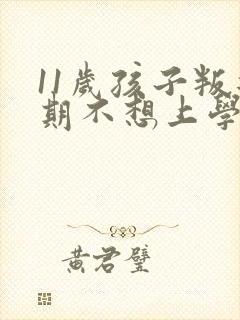 11歲孩子叛
期不想上學
黃君璧